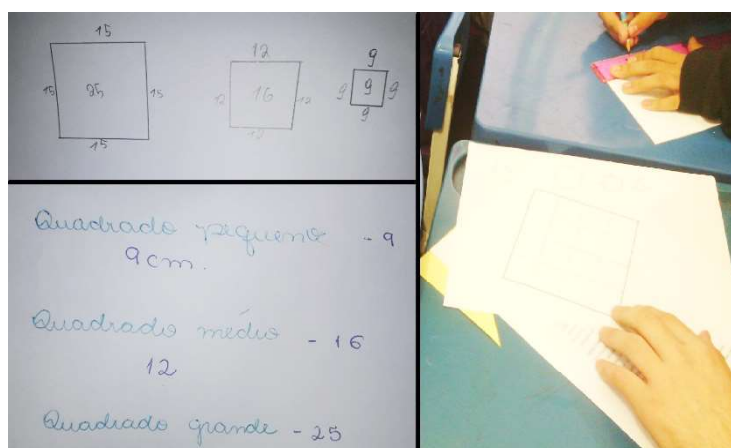 15 12 9
15 25 15 12 16 12 9 9 9
15 12 9
Quadrado pequeno - 9
9cm.
Quadrado médio - 16
12
Quadrado grande - 25